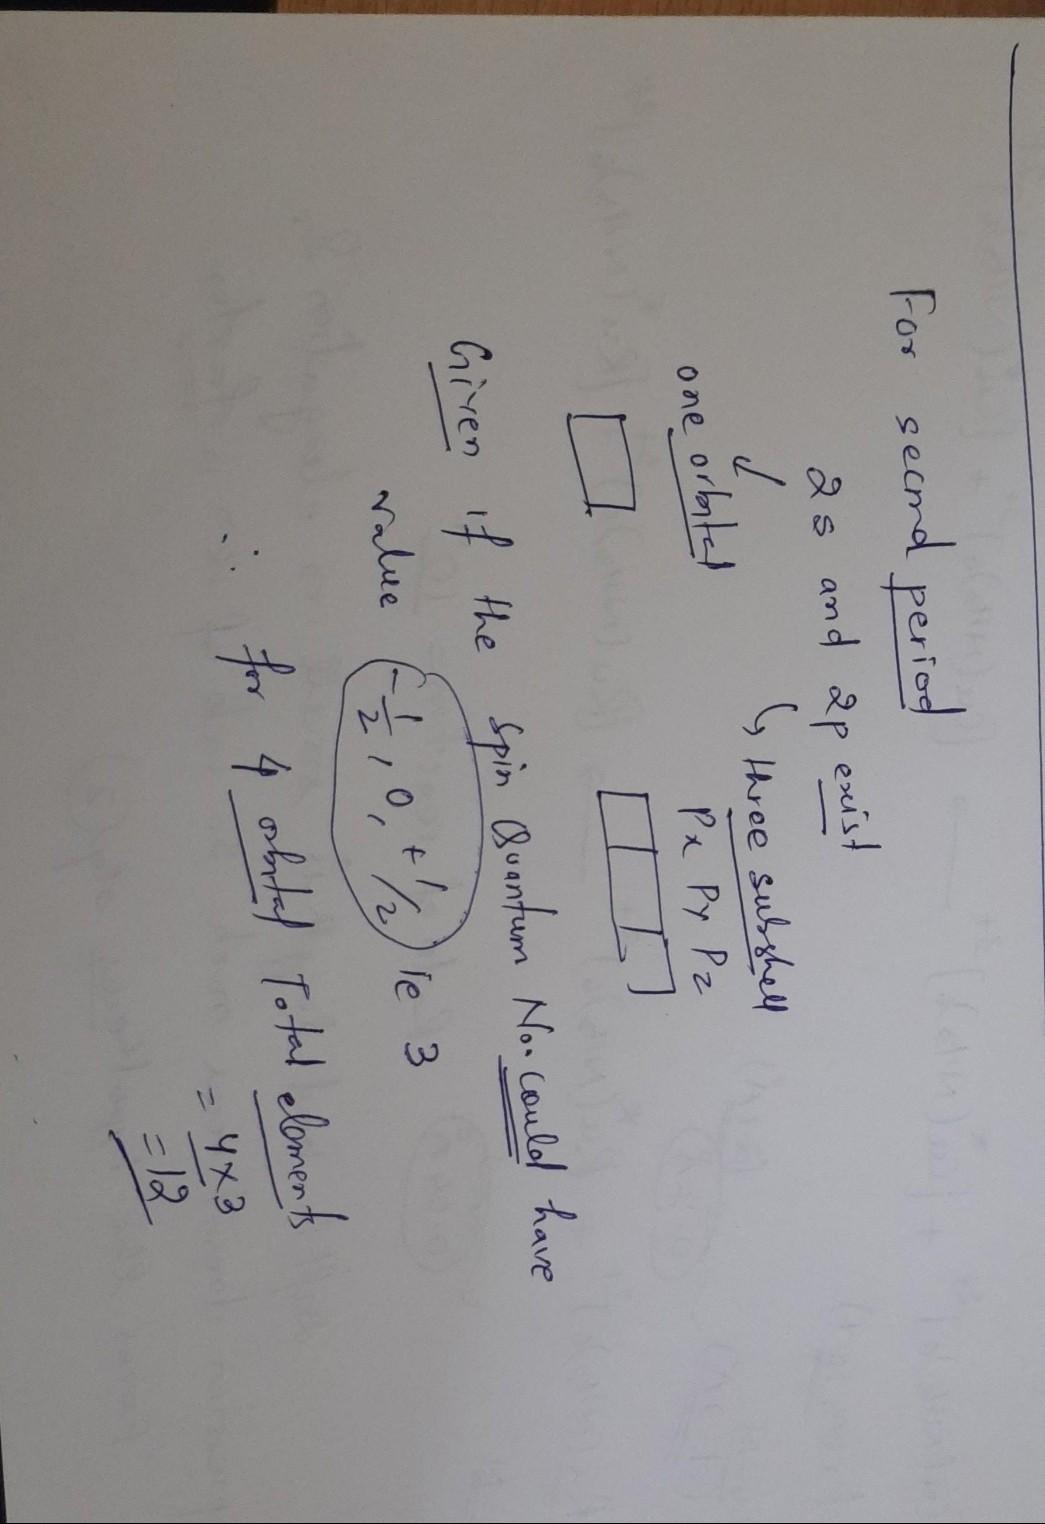 For second period
2s and 2p exist
↳ three subshell
one orbital
Px Py Pz
Given if the spin Quantum No. could have
value (-1/2, 0, +1/2) ie 3
∴ for 4 orbital Total elements
= 4x3
= 12